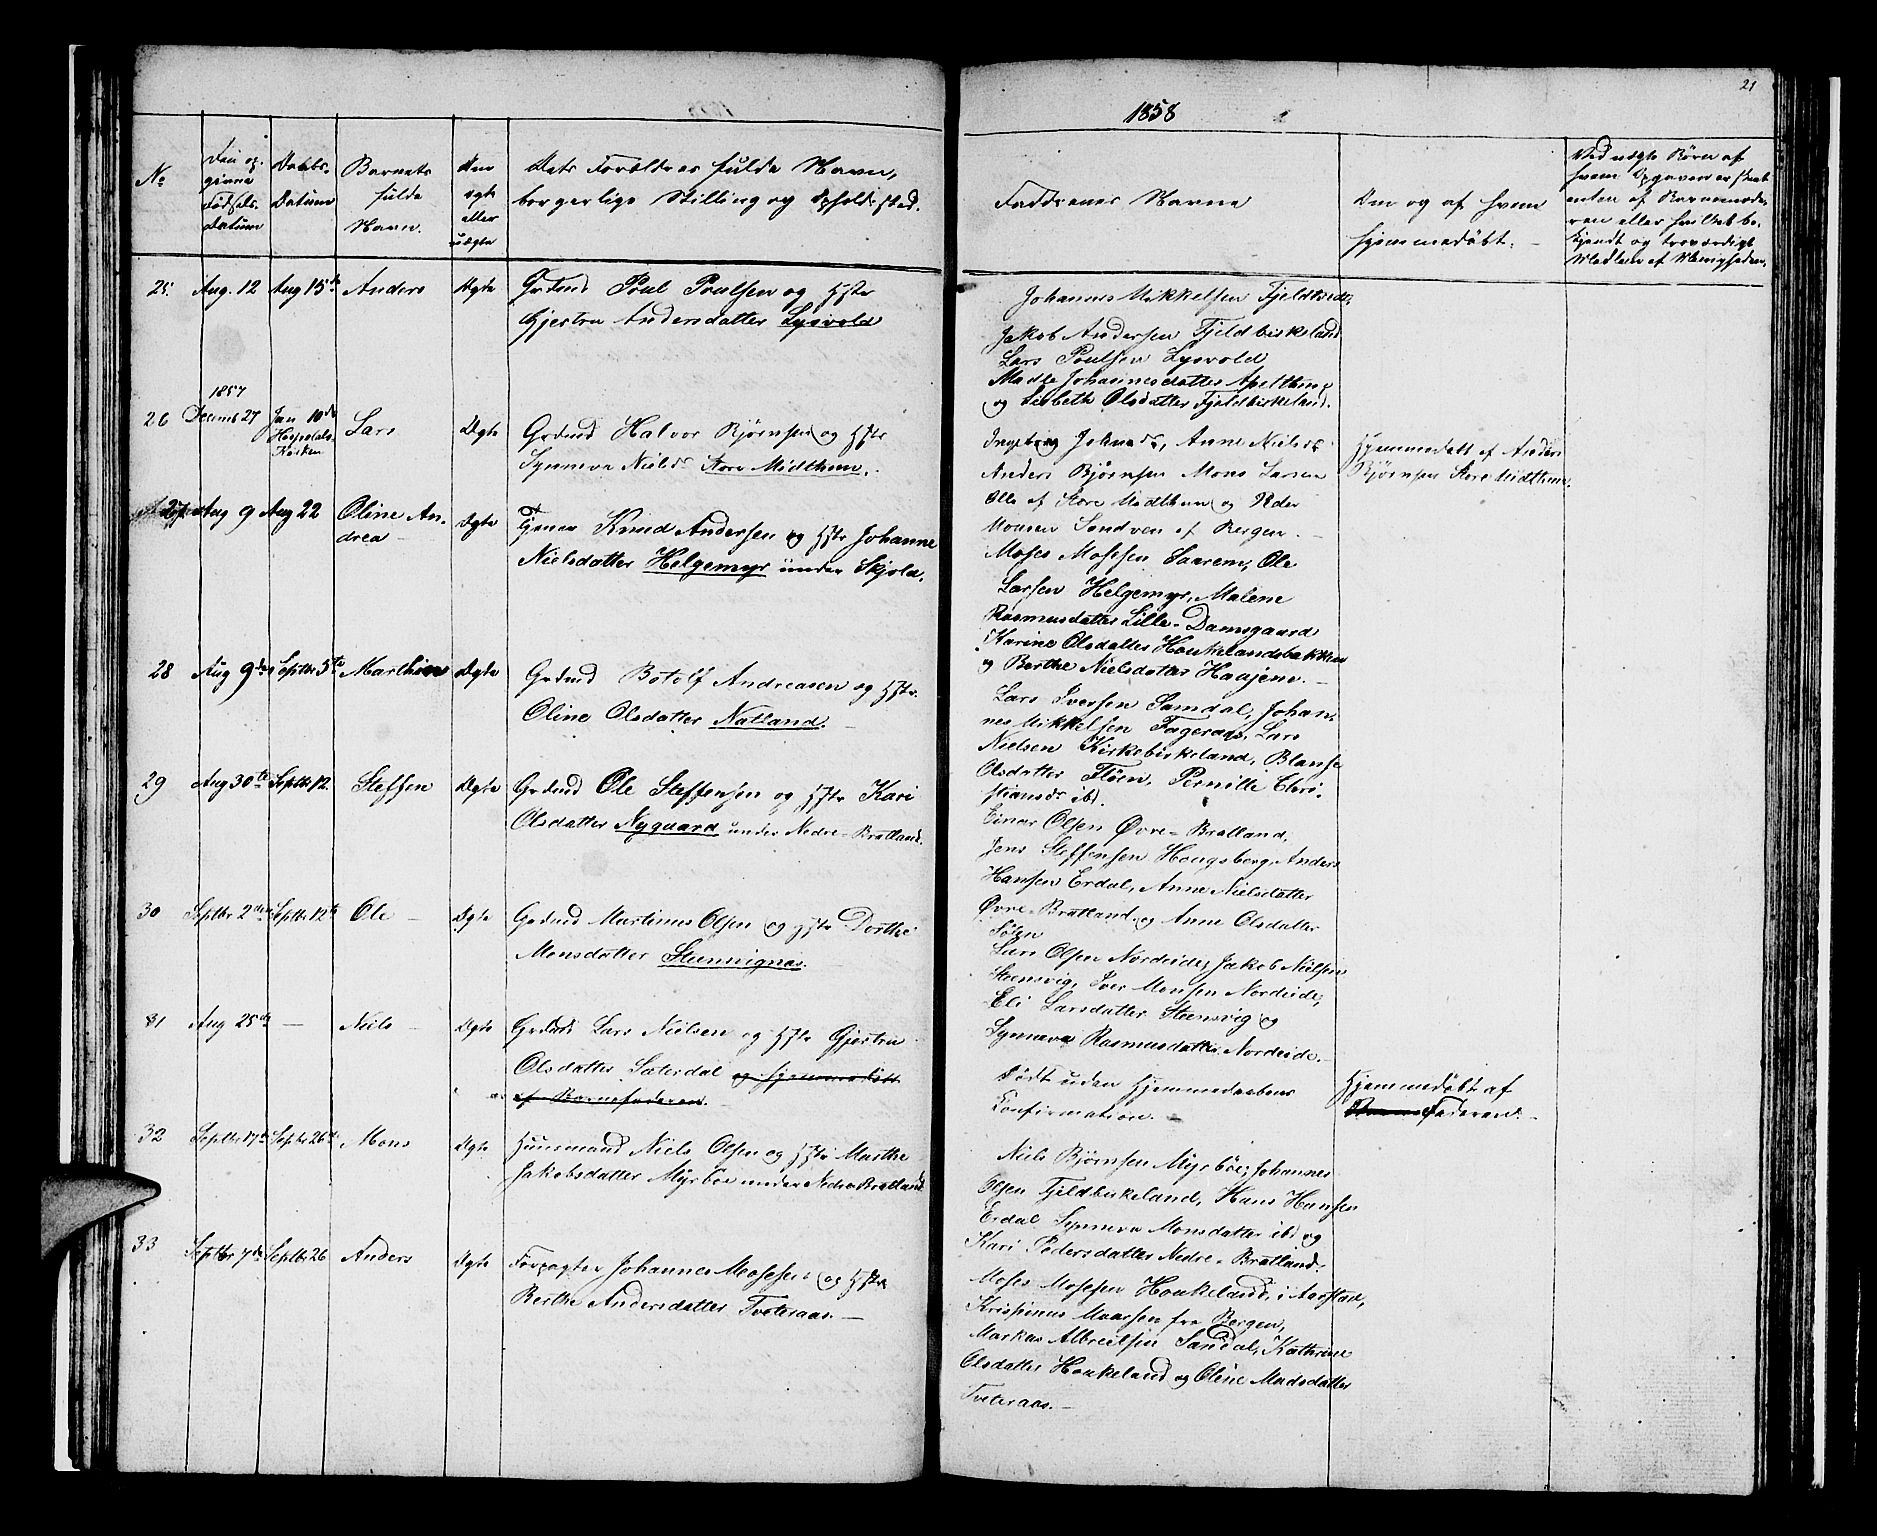 21
1858
No
Den op-
givne
Fødsels-
datum
Daabs-
Datum
Barnets
fulde
Navn.
Om
ægte
eller
uægte
Dets Forældres fulde Navn,
borgerlige Stilling og Opholdssted.
Faddrenes Navne
Om og af hvem
hjemmedøbt.
Ved uægte Børn af
hvem Opgaven er skeet
enten af Barnemode-
ren eller hvilket be-
kjendt og troværdigt
Medlem af Menigheden.
25. Aug. 12 Aug 15de Anders Ægte Grdmd Poul Poulsen og Hstr
Gjertru Andersdatter Lysvold
Johannes Mikkelsen Fjeldtvedt,
Jakob Andersen Fjeldbirkeland
Lars Poulsen Lysvold
Madle Johannesdatter Apelthun
og Lisbeth Olsdatter Fjeldbirkeland.
1857
26 Decemb 27 Jan 10de
Hospitals
Kirken
Lars Ægte Grdmd Halvor Bjørnsen og Hstr
Synneva Nielsdr Store Midthun.
Ingeborg Johnsdr, Anne Nielsdr
Anders Bjørnsen Mons Larsen
Alle af Store Midthun og Peder
Monsen Sandven af Bergen.
Hjemmedøbt af Anders
Bjørnsen Store Midthun.
27 Aug 9 Aug 22 Oline An-
drea
Ægte Tjener Knud Andersen og Hstr Johanne
Nielsdatter Helgemyr under Skjold.
Moses Mosesen Saarem, Ole
Larsen Helgemyr, Malene
Rasmusdatter Lille-Damsgaard
Karine Olsdatter Houkelandsbakken
og Berthe Nielsdatter Haajene.
28 Aug 9de Septbr 5te Marthine Ægte Grdmd Botolf Andreasen og Hstr.
Oline Olsdatter Natland.
Lars Iversen Samdal, Johan-
nes Mikkelsen Fageraas, Lars
Nielsen Kirkebirkeland, Blanse
Olsdatter Fløen, Pernille Chri-
stiansdr ibd.
29 Aug 30te Septbr 12. Steffen Ægte Grdmd Ole Steffensen og Hstr Kari
Olsdatter Nygaard under Nedre-Bratland.
Einar Olsen Øvre-Bratland,
Jens Steffensen Hougsberg, Anders
Hansen Erdal, Anne Nielsdatter
Øvre-Bratland og Anne Olsdatter
30 Septbr 2den Septbr 12te Ole Ægte Grdmd Martinus Olsen og Hstr Dorthe
Monsdatter Steensvignes.
Lars Olsen Nordeide, Jakob Nielsen
Steensvig, Iver Monsen Nordeide,
Eli Larsdatter Steensvig og
Synneva Rasmusdatter Nordeide.
31 Aug 25de — Niels Ægte Grdmd Lars Nielsen og Hstr Gjertru
Olsdatter Sæterdal og hjemmedøbt
af Barnefaderen.
Dødt uden Hjemmedaabens
Confirmation.
Hjemmedøbt af
Faderen.
32 Septbr 17de Septbr 26de Mons Ægte Huusmand Niels Olsen og Hstr Marthe
Jakobsdatter Myrbøe under Nedre-Bratland
Niels Bjørnsen Myrbøe, Johannes
Olsen Fjeldbirkeland, Hans Hansen
Erdal Synneva Monsdatter ibd og
Kari Pedersdatter Nedre-Bratland.
33 Septbr 7de Septbr 26 Anders Ægte Forpagter Johannes Mosesen og Hstr
Berthe Andersdatter Tveteraas.
Moses Mosesen Houkeland, i Aarstad,
Krispinus Maarsen fra Bergen,
Markus Albreitsen Sandal, Kathrine
Olsdatter Houkeland og Oline Madsdatter
Tveteraas.